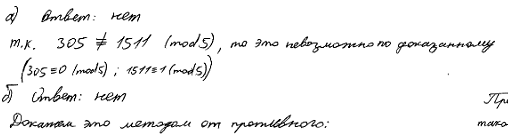 а) Ответ: нет
т.к. 305 ≢ 1511 (mod 5), то это невозможно по доказанному
(305 ≡ 0 (mod 5) ; 1511 ≡ 1 (mod 5))
б) Ответ: нет
Докажем это методом от противного: